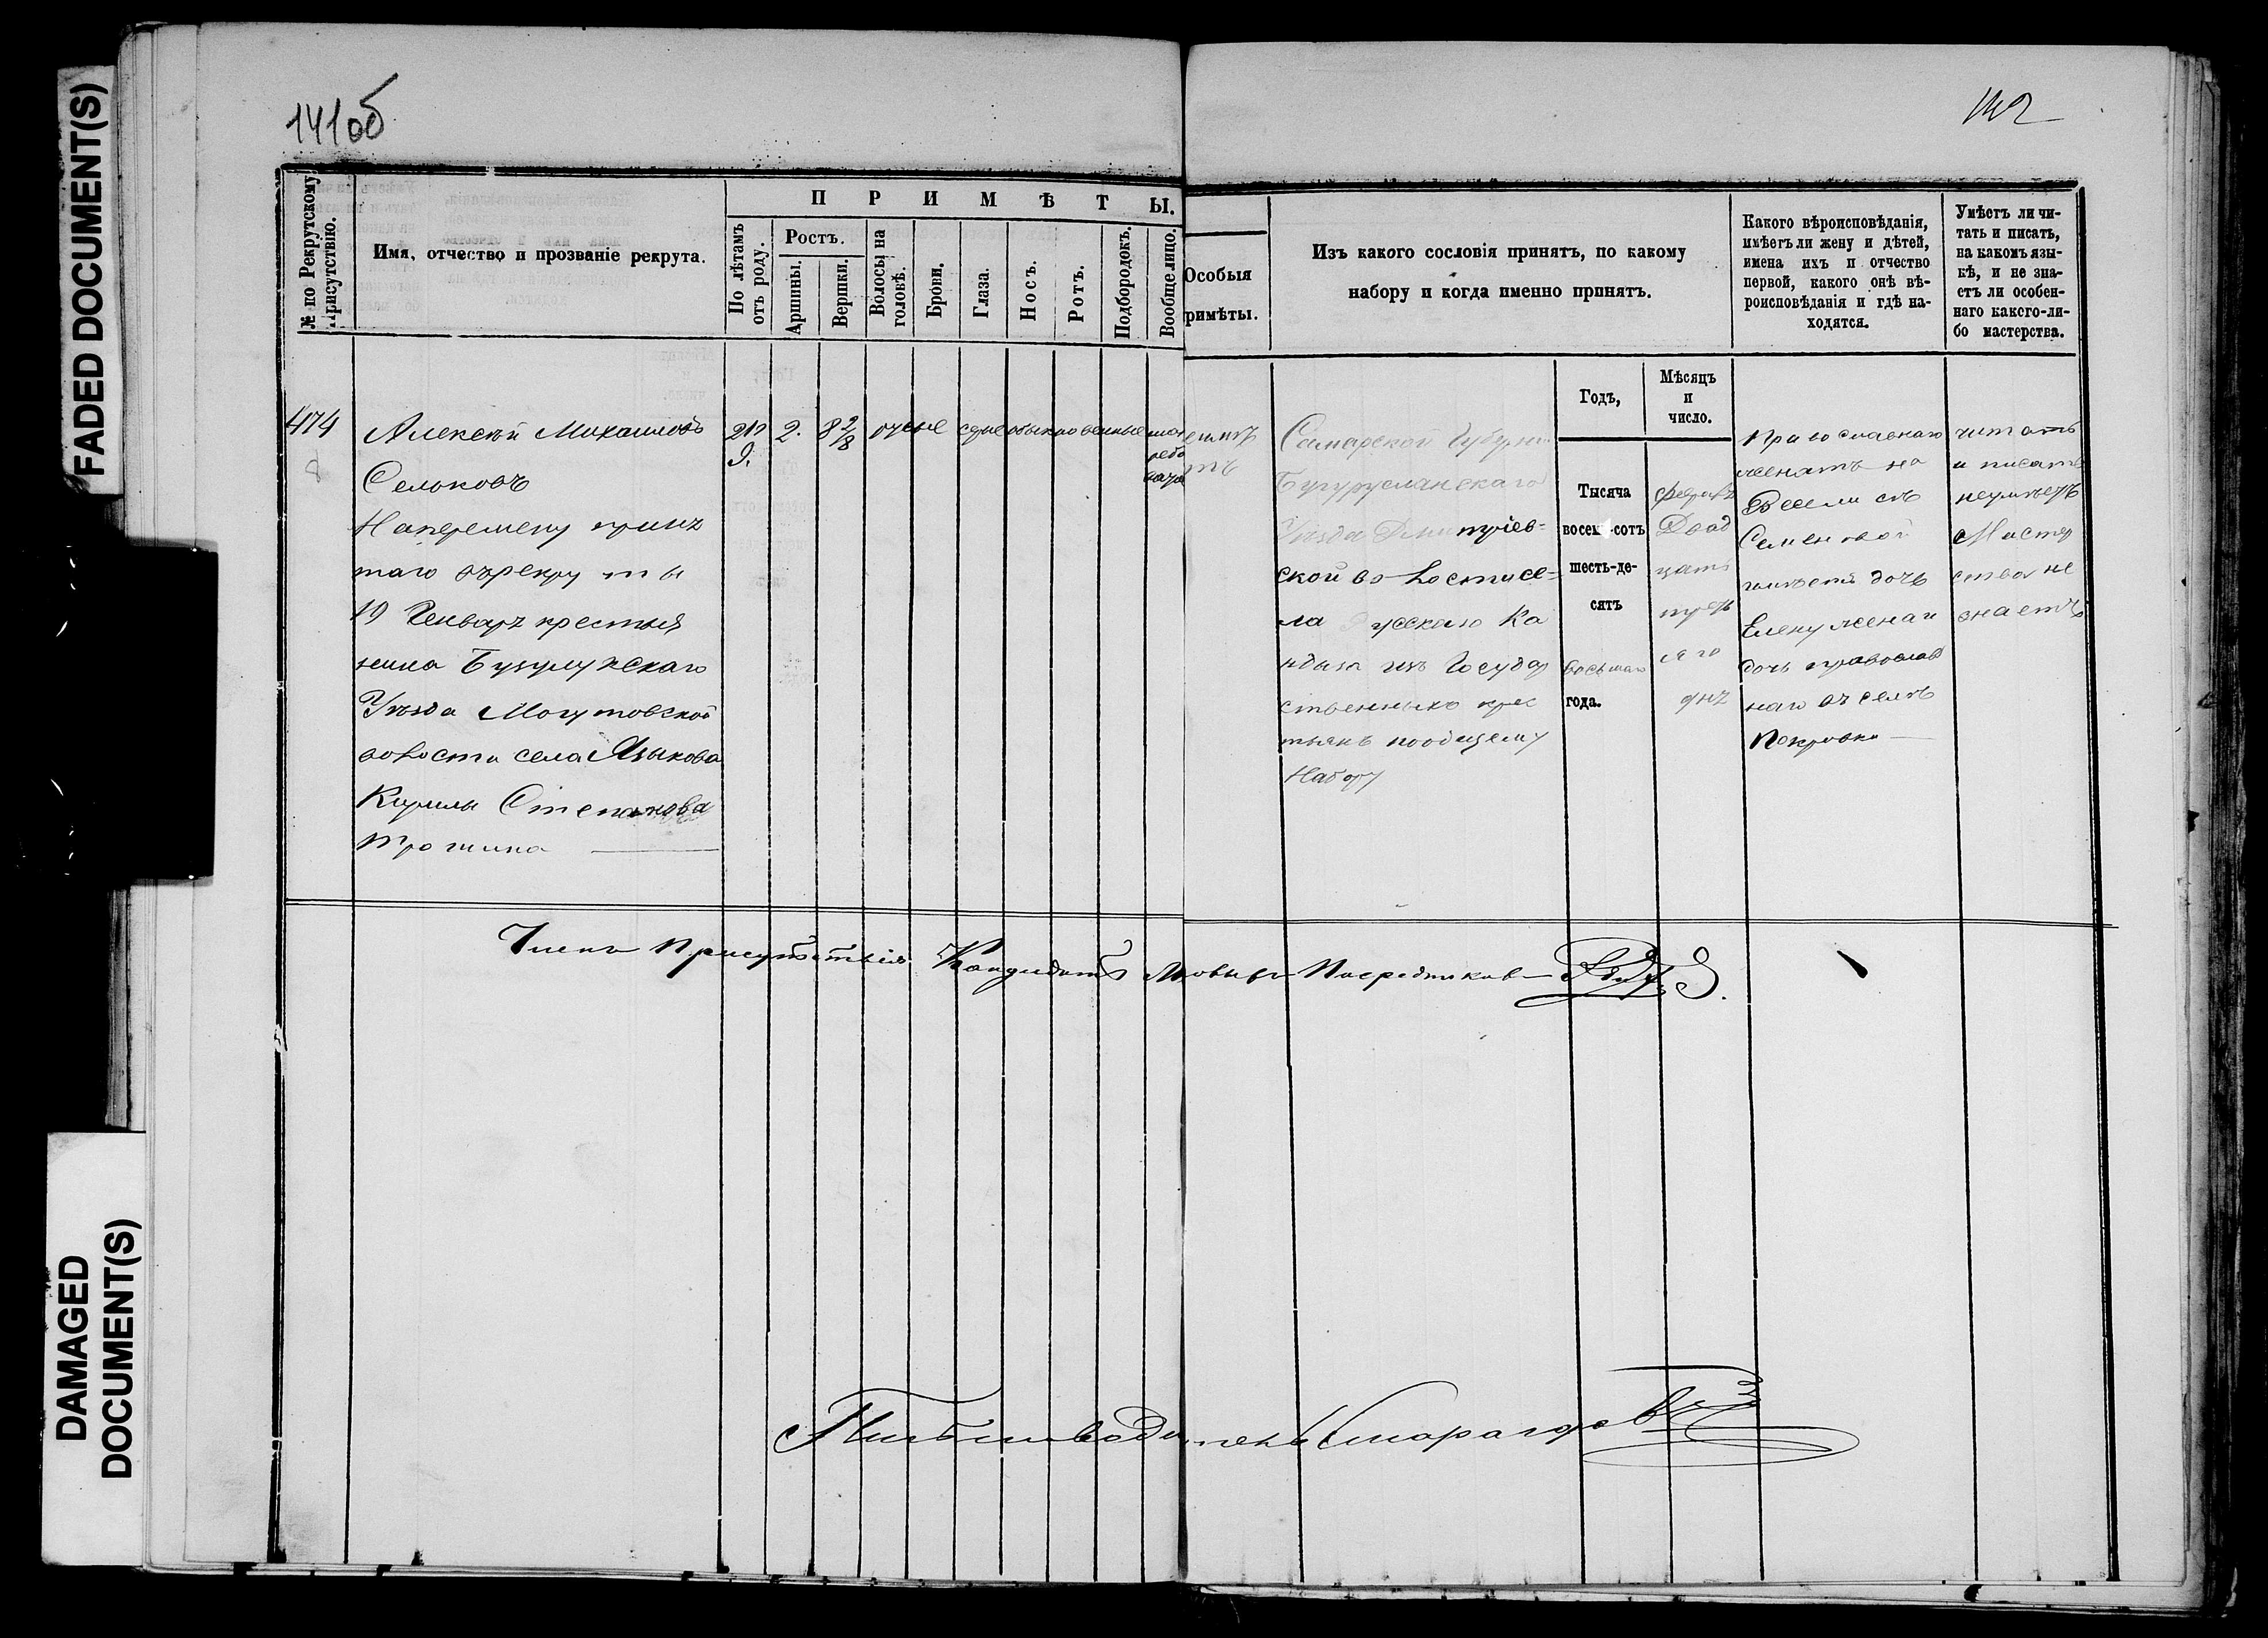 FADED DOCUMENT(S)
DAMAGED
DOCUMENT(S)
141об
142
№ по Рекрутскому
Присутствію.
Имя, отчество и прозваніе рекрута.
ПРИМѢТЫ.
По лѣтамъ
отъ роду.
Ростъ.
Аршины.
Вершки.
Волосы на
головѣ.
Брови.
Глаза.
Носъ.
Ротъ.
Подбородокъ.
Вообще лицо.
Особыя
римѣты.
Изъ какого сословія принятъ, по какому
набору и когда именно принятъ.
Какого вѣроисповѣданія,
имѣетъ ли жену и дѣтей,
имена ихъ и отчество
первой, какого онѣ вѣ-
роисповѣданія и гдѣ на-
ходятся.
Умѣетъ ли чи-
тать и писать,
на какомъ язы-
кѣ, и не зна-
етъ ли особен-
наго какого-ли-
бо мастерства.
474
8
Алексѣй Михаиловъ
Сельковъ
Наперемену приня
таго върекруты
19 Генваря крестья
нина Бузулукскаго
Уѣзда Могутовской
волости села Языкова
Кирилы Степанова
Трошина
2.
8 2/8
русые
серые
обыкновенные
Самарской Губерни
Бугурусланскаго
Уѣзда Дмитріев-
ской волости се-
ла Русскаго Ка
ндыза изъ Государ
ственныхъ крес
тьянъ пообщему
Набору
Годъ,
Тысяча
восемь-сотъ
шесть-де-
сятъ
восьмаго
года.
Мѣсяцъ
и
число.
Февраля
Двад
цать
дня
Православнаго
женатъ на
Семеновой
имѣетъ дочь
Елену жена и
дочь православ
наго въ селѣ
Покровке
читать
и писать
неумѣетъ
Мастер
ства не
знаетъ
Членъ Присутствія Кандидатъ Мировыхъ Посредниковъ
Письмоводитель Смарагдовъ